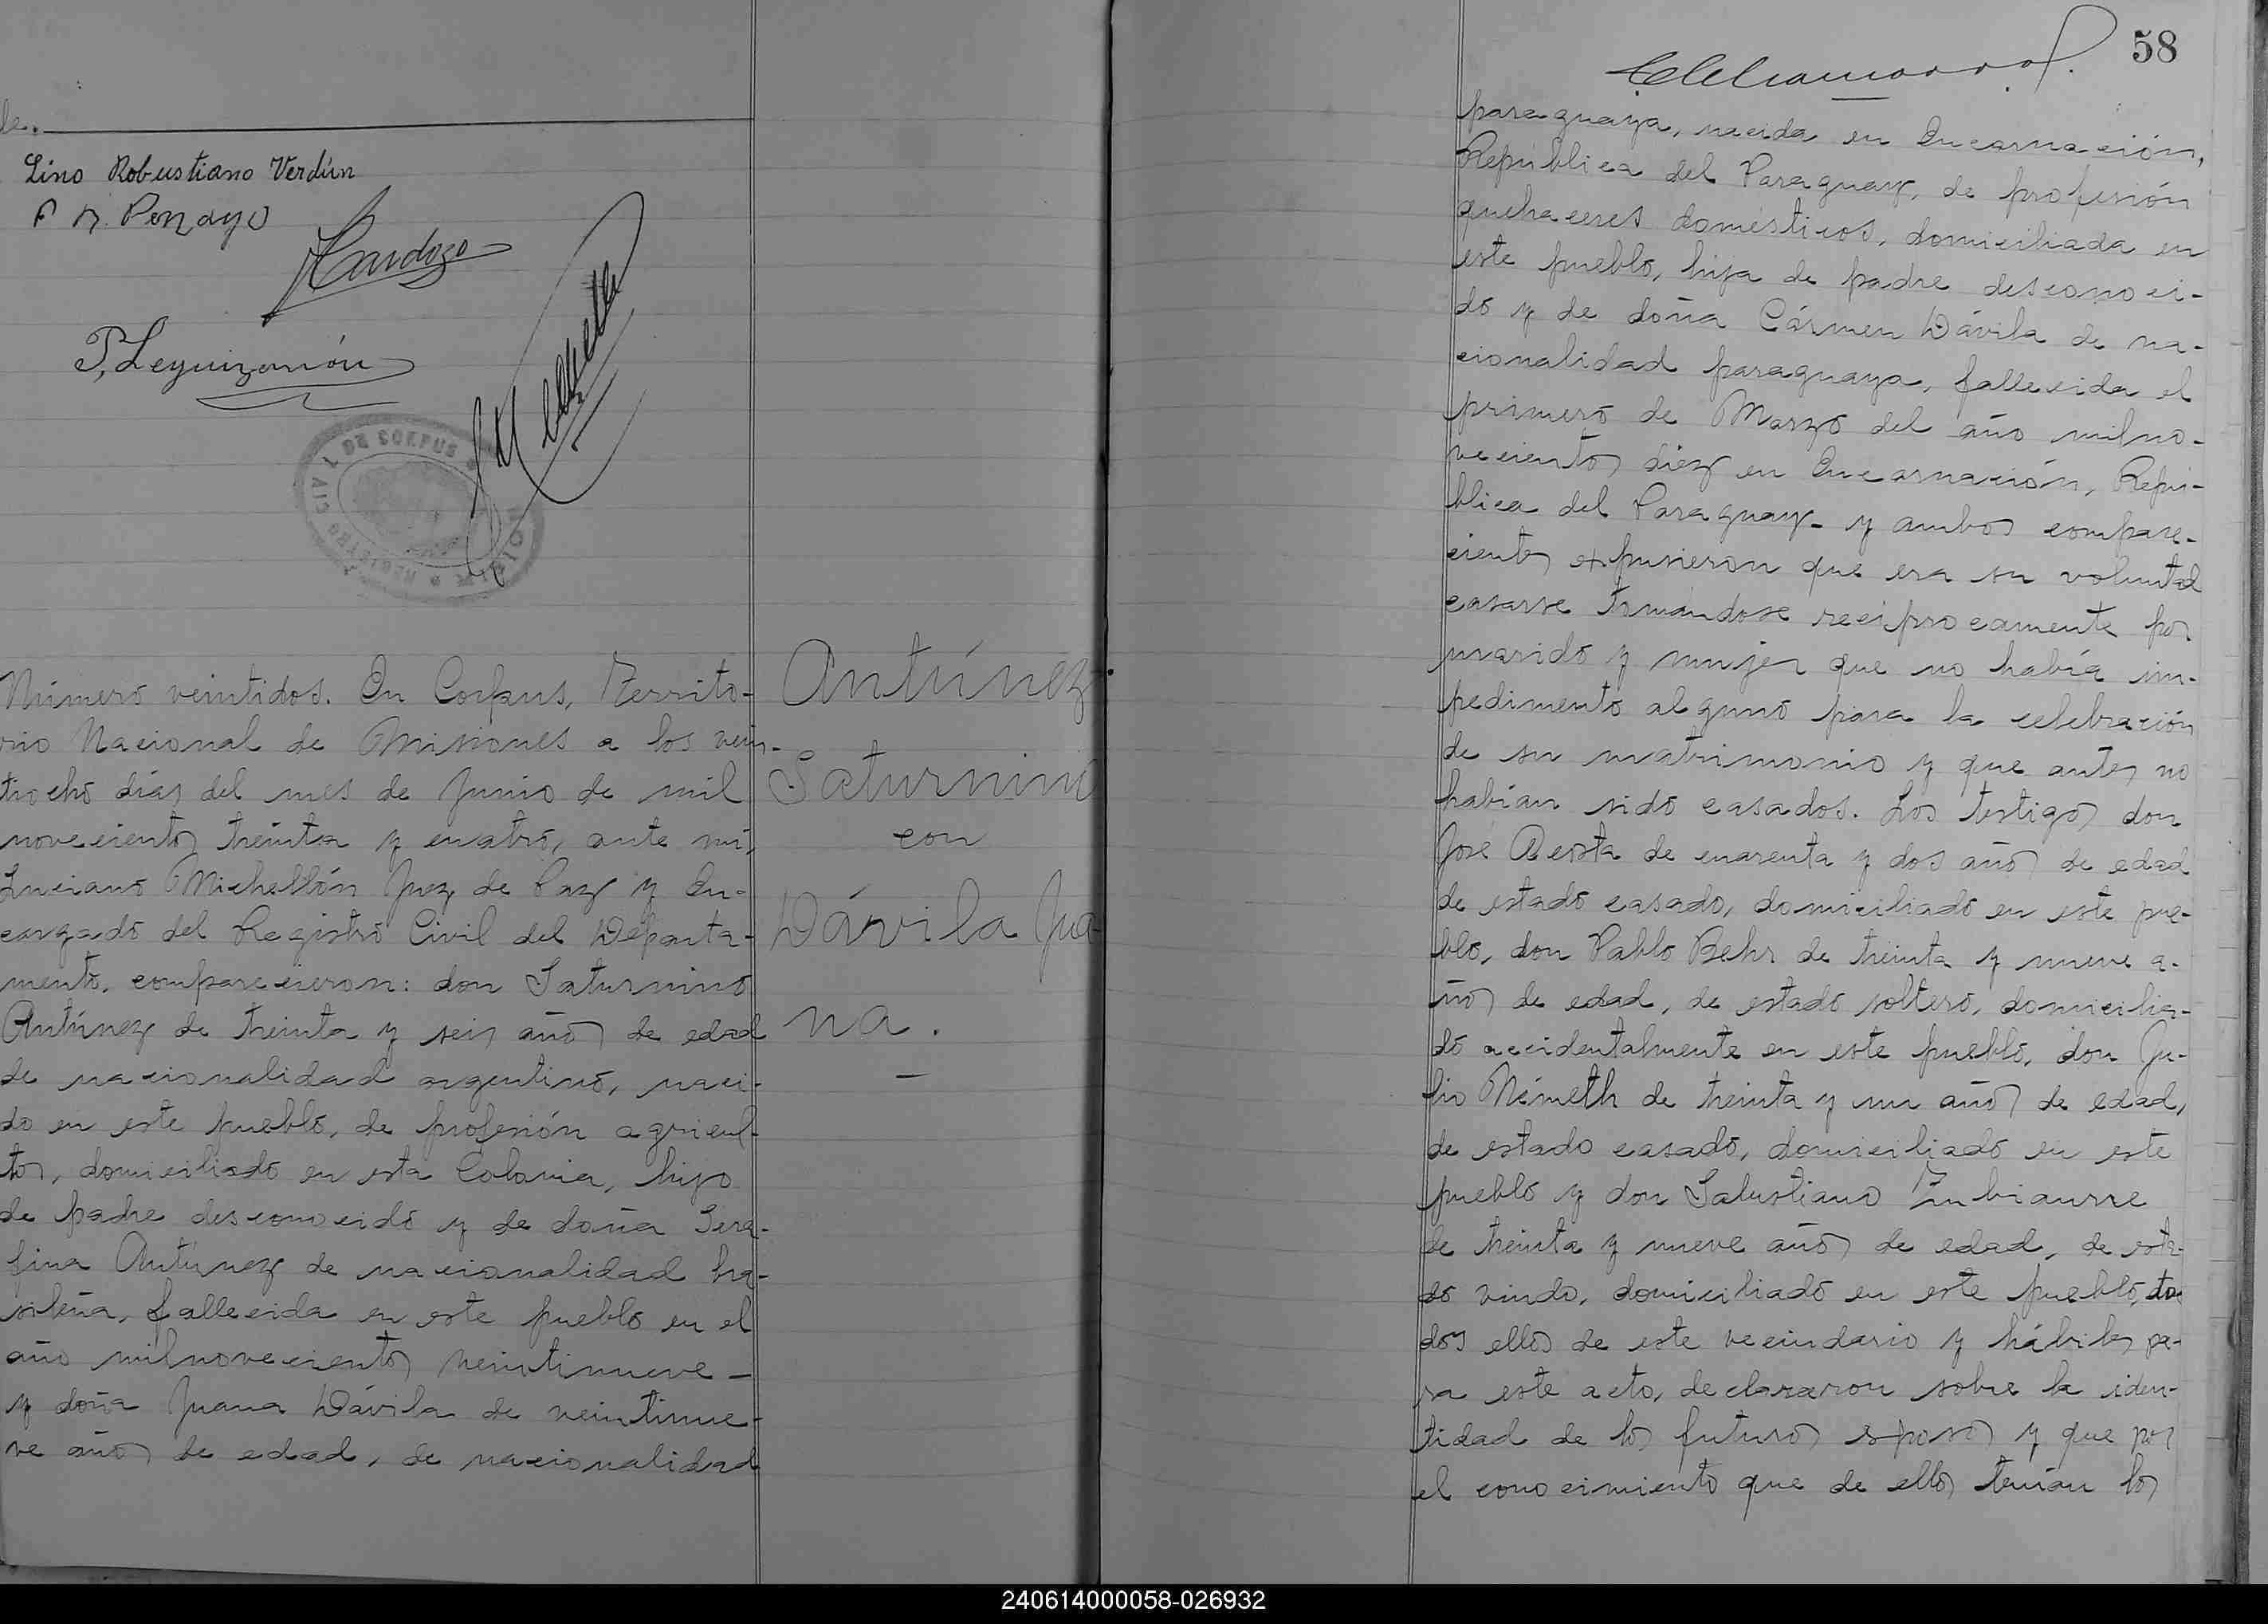 de.
Lino Robustiano Verdún
Cardozo
P. Leguizamón
REGISTRO CIVIL DE CORPUS
Número veintidos. En Corpus, Territo-
rio Nacional de Misiones a los vein-
tiocho días del mes de Junio de mil
novecientos treinta y cuatro, ante mí,
Luciano Michellón Juez de Paz y En-
cargado del Registro Civil del Departa-
mento, comparecieron: don Saturnino
Antúnez de treinta y seis años de edad
de nacionalidad argentino, naci-
do en este pueblo, de profesión agricul-
tor, domiciliado en esta Colonia, hijo
de padre desconocido y de doña Sera-
fina Antúnez de nacionalidad bra-
sileña, fallecida en este pueblo en el
año milnovecientos veintinueve -
y doña Juana Dávila de veintinue-
ve años de edad, de nacionalidad
Antúnez
Saturnino
con
Dávila Jua-
na.
58
paraguaya, nacida en Encarnación,
República del Paraguay, de profesión
quehaceres domésticos, domiciliada en
este pueblo, hija de padre desconoci-
do y de doña Cármen Dávila de na-
cionalidad paraguaya, fallecida el
primero de Marzo del año milno-
vecientos diez en Encarnación, Repú-
blica del Paraguay - y ambos compare-
cientes expusieron que era su voluntad
casarse tomándose recíprocamente por
marido y mujer que no había im-
pedimento alguno para la celebración
de su matrimonio y que antes no
habían sido casados. Los testigos don
José Acosta de cuarenta y dos años de edad
de estado casado, domiciliado en este pue-
blo, don Pablo Behr de treinta y nueve a-
ños de edad, de estado soltero, domicilia-
do accidentalmente en este pueblo, don Ju-
lio Németh de treinta y un años de edad,
de estado casado, domiciliado en este
pueblo y don Salustiano Zubiaurre
de treinta y nueve años de edad, de esta-
do viudo, domiciliado en este pueblo, to-
dos ellos de este vecindario y hábiles pa-
ra este acto, declararon sobre la iden-
tidad de los futuros esposos y que por
el conocimiento que de ellos tenían los
240614000058-026932